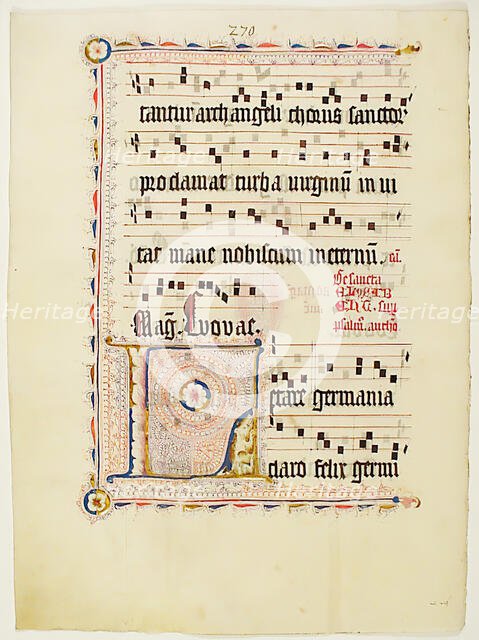 270
tantur archangeli chorus sanctor
proclamat turba virginū in vi
tat mane nobiscum in eternū.
De sancta
psalmꝰ. antho
Mag. Evovae.
L
etare germania
claro felix germi
Heritage
Heritage
Heritage
Heritage